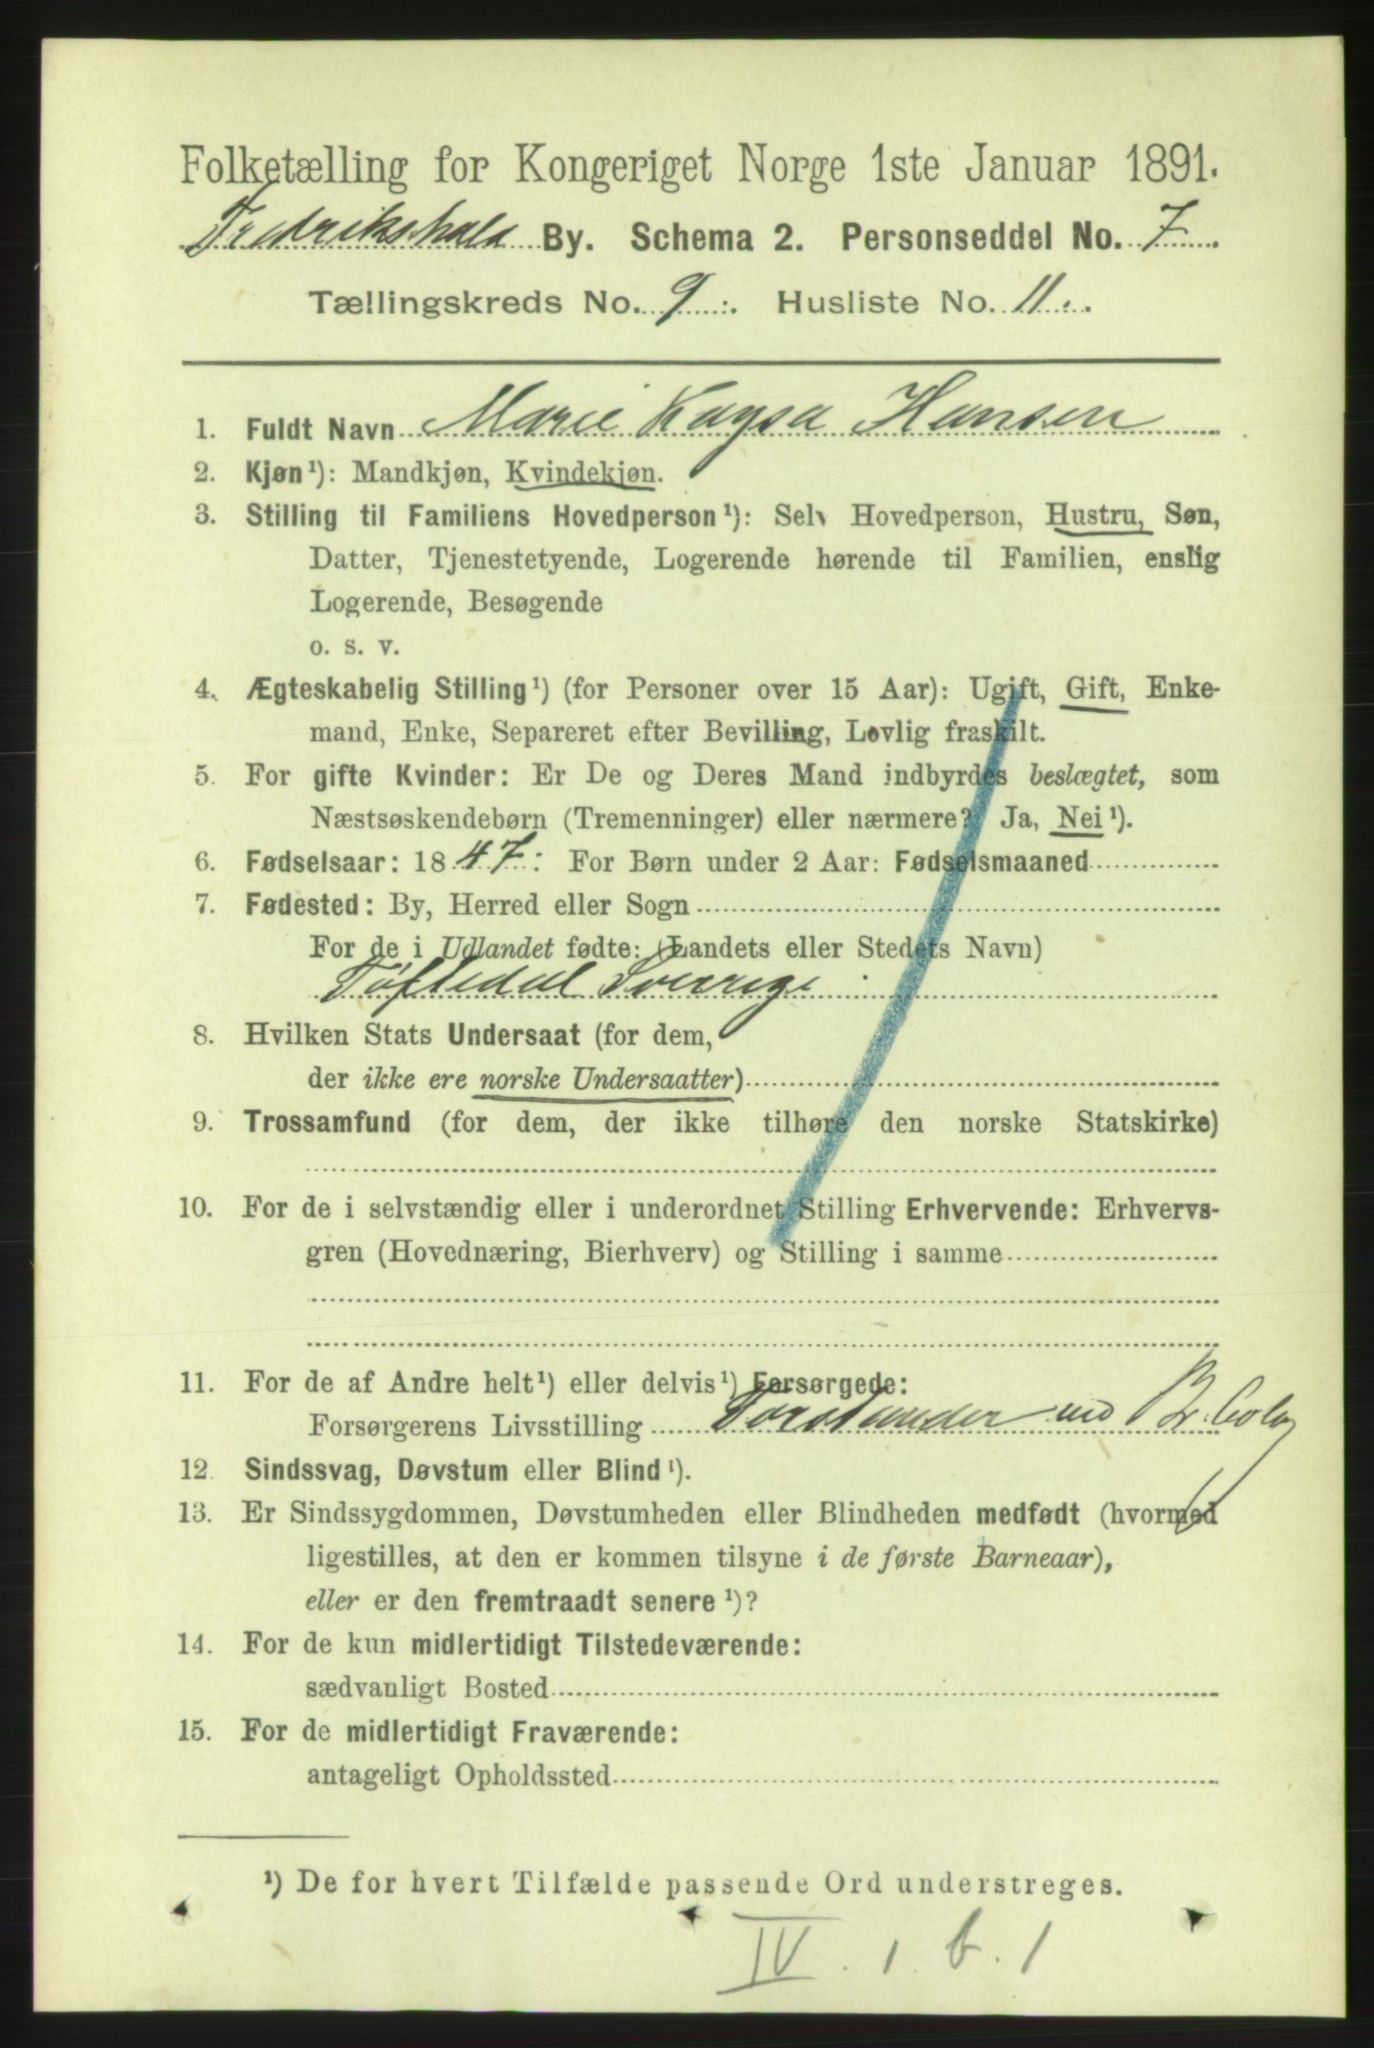 Folketælling for Kongeriget Norge 1ste Januar 1891.
Fredrikshald By. Schema 2. Personseddel No. 7.
Tællingskreds No. 9. Husliste No. 11.
1. Fuldt Navn Marie Kaysa Hansen
2. Kjøn¹): Mandkjøn, Kvindekjøn.
3. Stilling til Familiens Hovedperson¹): Selv Hovedperson, Hustru, Søn,
Datter, Tjenestetyende, Logerende hørende til Familien, enslig
Logerende, Besøgende
o. s. v.
4. Ægteskabelig Stilling¹) (for Personer over 15 Aar): Ugift, Gift, Enke-
mand, Enke, Separeret efter Bevilling, Lovlig fraskilt.
5. For gifte Kvinder: Er De og Deres Mand indbyrdes beslægtet, som
Næstsøskendebørn (Tremenninger) eller nærmere? Ja, Nei¹).
6. Fødselsaar: 1847: For Børn under 2 Aar: Fødselsmaaned
7. Fødested: By, Herred eller Sogn
For de i Udlandet fødte: (Landets eller Stedets Navn)
Töftedal Sverrige
8. Hvilken Stats Undersaat (for dem,
der ikke ere norske Undersaatter)
9. Trossamfund (for dem, der ikke tilhøre den norske Statskirke)
10. For de i selvstændig eller i underordnet Stilling Erhvervende: Erhvervs-
gren (Hovednæring, Bierhverv) og Stilling i samme
11. For de af Andre helt¹) eller delvis¹) Forsørgede:
Forsørgerens Livsstilling Forstander
12. Sindssvag, Døvstum eller Blind¹).
13. Er Sindssygdommen, Døvstumheden eller Blindheden medfødt (hvormed
ligestilles, at den er kommen tilsyne i de første Barneaar),
eller er den fremtraadt senere¹)?
14. For de kun midlertidigt Tilstedeværende:
sædvanligt Bosted
15. For de midlertidigt Fraværende:
antageligt Opholdssted
¹) De for hvert Tilfælde passende Ord understreges.
IV. 1. b. 1